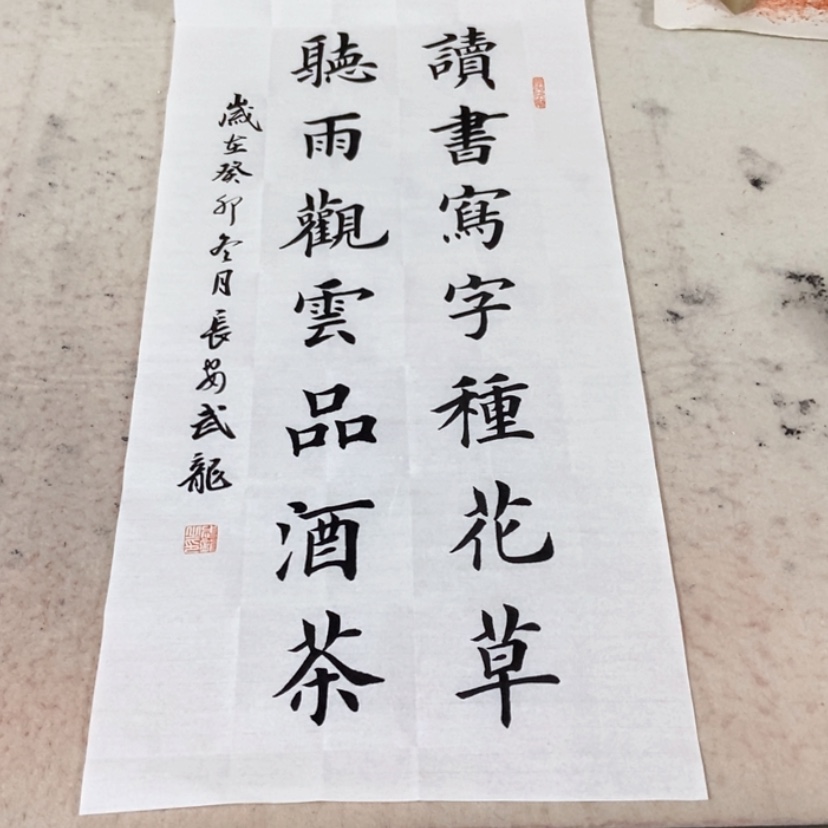 讀書寫字種花草
聽雨觀雲品酒茶
歲在癸卯冬月長安武龍